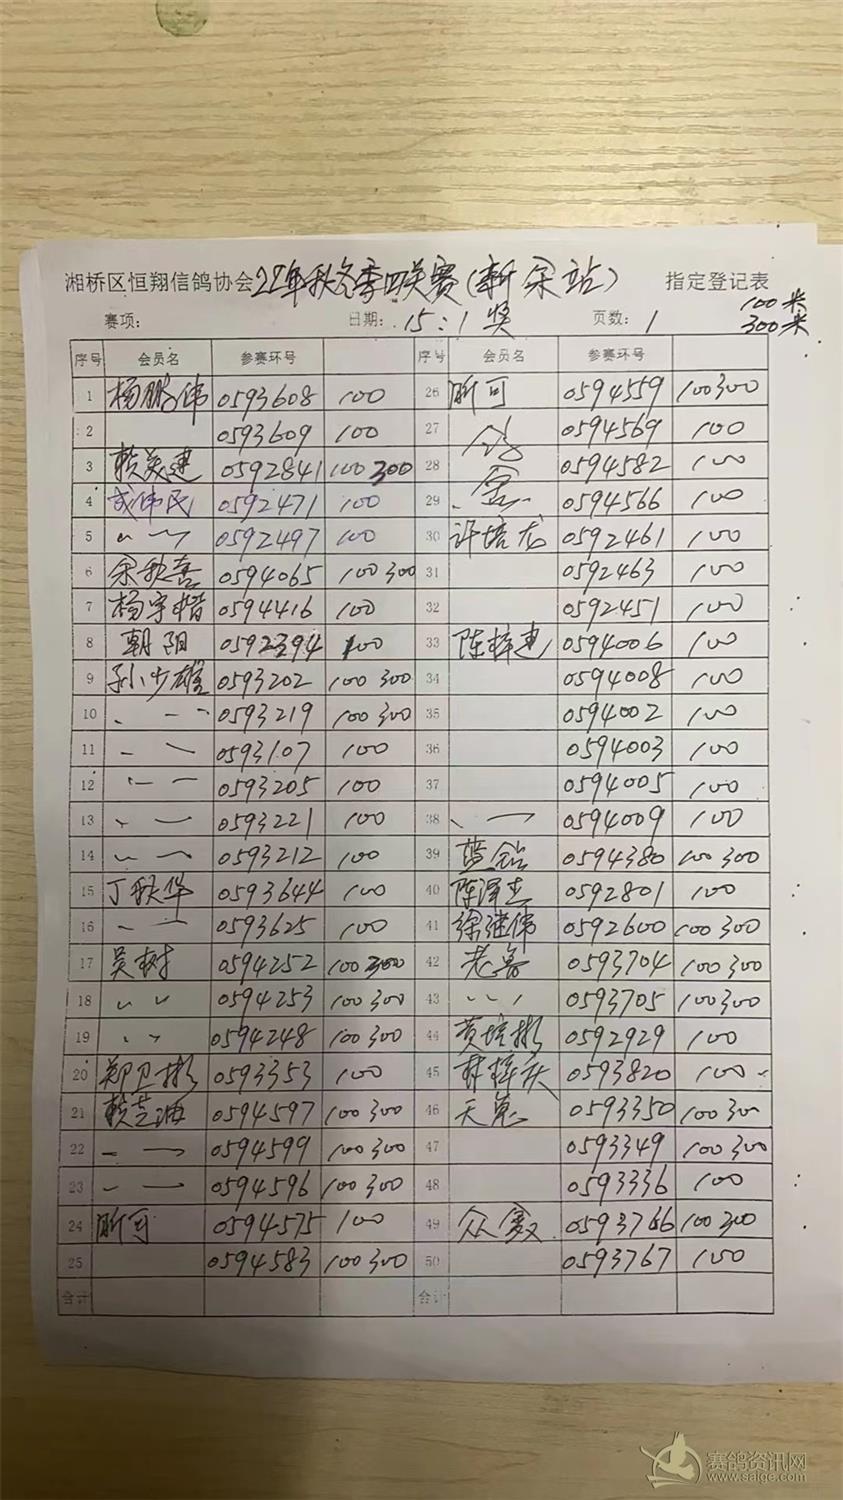 湘桥区恒翔信鸽协会22年秋冬季四关赛(新余站) 指定登记表
赛项: 日期: 15:1奖 页数: 1 100米
300米
序号 会员名 参赛环号 序号 会员名 参赛环号
1 杨鹏伟 0593608 100 26 昕可 0594559 100 300
2 0593609 100 27 0594569 100
3 赖英建 0592841 100 300 28 0594582 100
4 成伟民 0592471 100 29 0594566 100
5 〃 0592497 100 30 许培龙 0592461 100
6 余秋喜 0594065 100 300 31 0592463 100
7 杨宇楷 0594416 100 32 0592451 100
8 朝阳 0592394 100 33 陈梓惠 0594006 100
9 孙少雄 0593202 100 300 34 0594008 100
10 〃 0593219 100 300 35 0594002 100
11 〃 0593107 100 36 0594003 100
12 〃 0593205 100 37 0594005 100
13 〃 0593221 100 38 〃 0594009 100
14 〃 0593212 100 39 蓝钻 0594380 100 300
15 丁秋华 0593644 100 40 陈泽杰 0592801 100
16 〃 0593625 100 41 徐继伟 0592600 100 300
17 吴树 0594252 100 300 42 0593704 100 300
18 〃 0594253 100 300 43 〃 0593705 100 300
19 〃 0594248 100 300 44 黄培彬 0592929 100
20 郑卫彬 0593353 100 45 林梓庆 0593820 100
21 赖芝海 0594597 100 300 46 0593350 100 300
22 〃 0594599 100 300 47 0593349 100 300
23 〃 0594596 100 300 48 0593336 100
24 昕可 0594575 100 49 0593766 100 300
25 0594583 100 300 50 0593767 100
合计 合计
赛鸽资讯网
www.saige.com